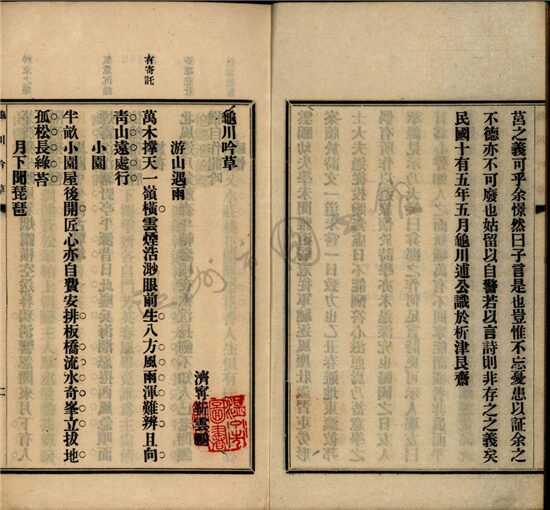 莒之義可乎余憬然曰子言是也豈惟不忘憂患以証余之
不德亦不可廢也姑留以自警若以言詩則非存之之義矣
民國十有五年五月龜川逋公識於析津艮齋
龜川吟草
濟寧靳雲鵬
游山遇雨
有寄託
萬木撑天一嶺橫雲煙浩渺眼前生八方風雨渾難辨且向
青山遠處行
小園
半畝小園屋後開匠心亦自費安排板橋流水奇峯立拔地
孤松長綠苔
月下聞琵琶
龜川吟草